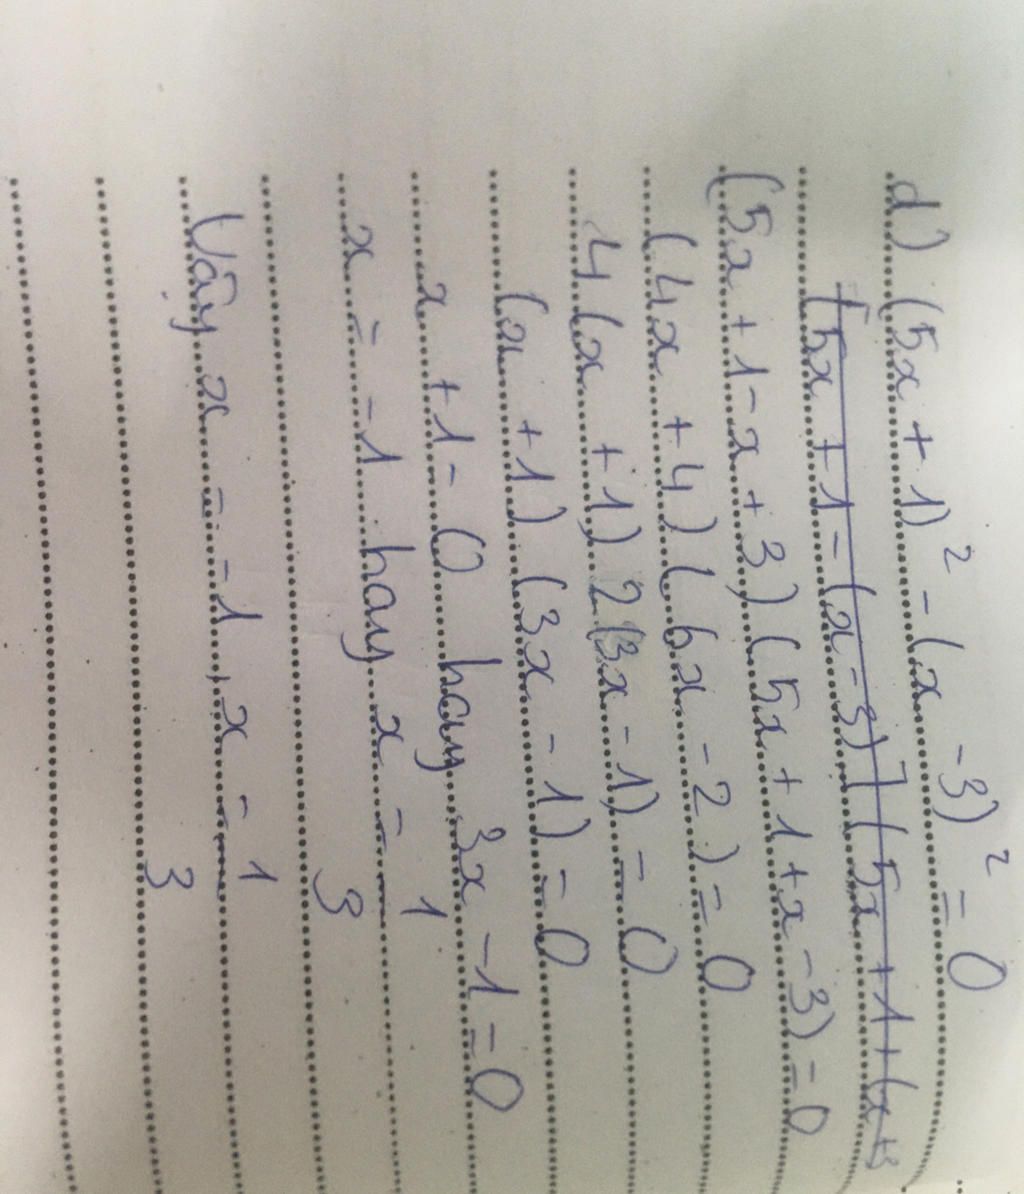 d) (5x + 1)² - (x - 3)² = 0
[5x + 1 - (x - 3)] (5x + 1 + (x + 3
(5x + 1 - x + 3) (5x + 1 + x - 3) = 0
(4x + 4) (6x - 2) = 0
4 (x + 1) 2 (3x - 1) = 0
(x + 1) (3x - 1) = 0
x + 1 = 0 hay 3x - 1 = 0
x = -1 hay x = 1/3
Vây x = -1, x = 1/3